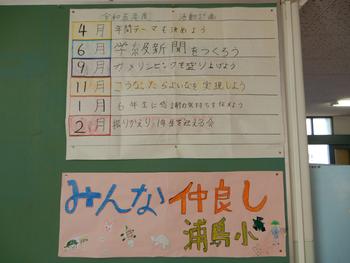 令和五年度 活動計画
4月 年間テーマを決めよう
6月 学級新聞をつくろう
9月 カメリンピックを盛り上げよう
11月 こうなったらよいなを実現しよう
1月 6年生に感謝の気持ちを伝えよう
2月 振りかえり・1年生を迎える会
みんな仲良し
浦島小